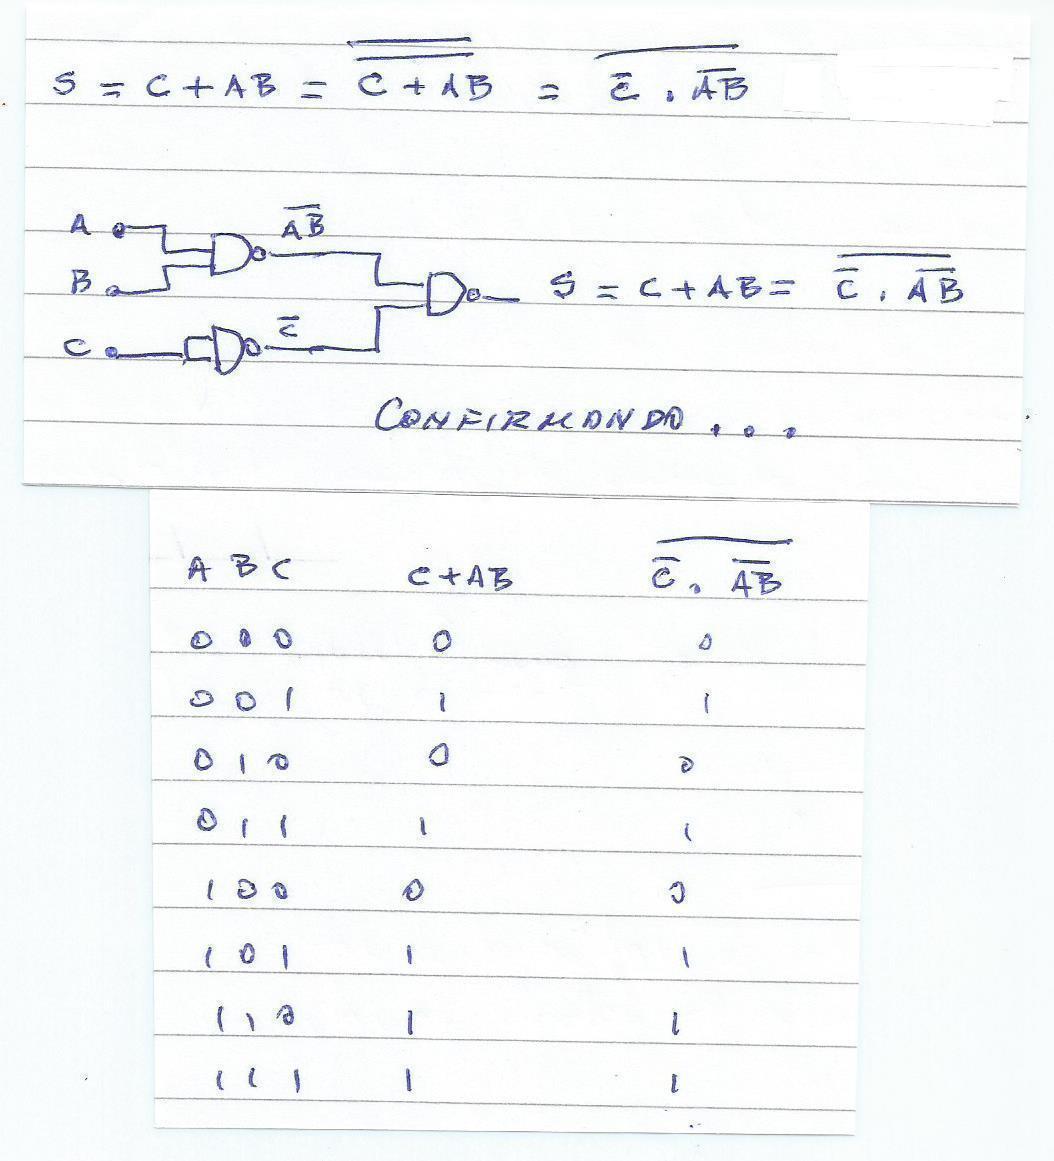 S = C + AB = C̿ ̿+̿ ̿A̿B̿ = \overline{C̅ . \overline{AB}}
A
\overline{AB}
B
S = C + AB = \overline{C̅ . \overline{AB}}
C
C̅
CONFIRMANDO ...
A B C C + AB \overline{C̅ . \overline{AB}}
0 0 0 0 0
0 0 1 1 1
0 1 0 0 0
0 1 1 1 1
1 0 0 0 0
1 0 1 1 1
1 1 0 1 1
1 1 1 1 1